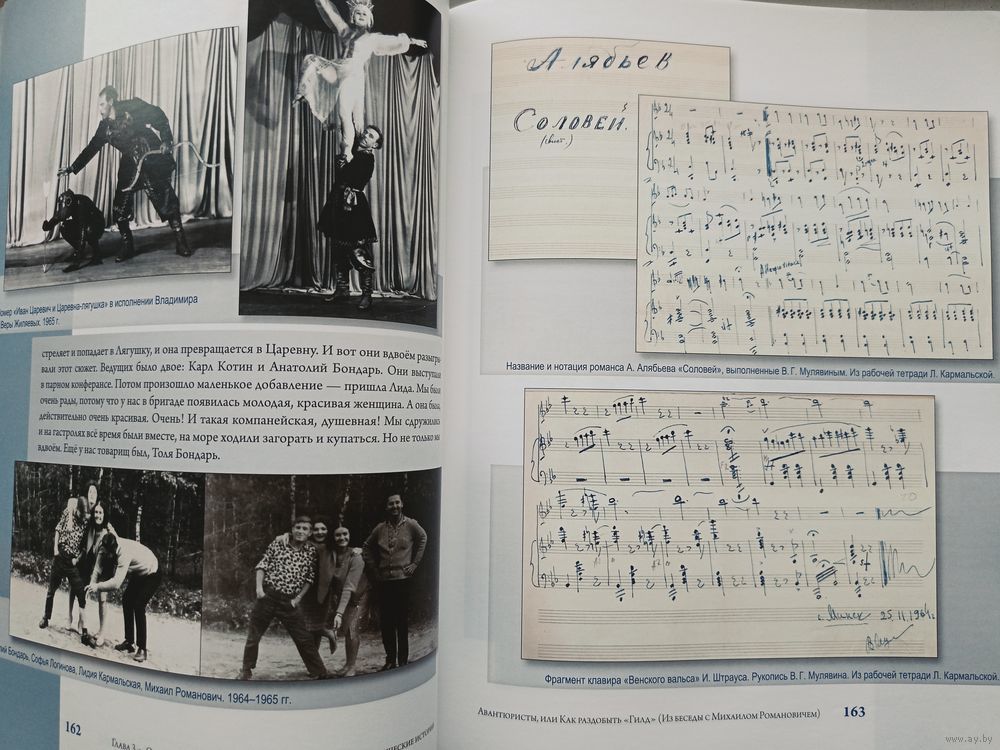 «Иван Царевич и Царевна-лягушка» в исполнении Владимира
Веры Жиляевых. 1965 г.
стреляет и попадает в Лягушку, и она превращается в Царевну. И вот они вдвоём разыгры-
вали этот сюжет. Ведущих было двое: Карл Котин и Анатолий Бондарь. Они выступали
в парном конферансе. Потом произошло маленькое добавление — пришла Лида. Мы были
очень рады, потому что у нас в бригаде появилась молодая, красивая женщина. А она была
действительно очень красивая. Очень! И такая компанейская, душевная! Мы сдружились
и на гастролях всё время были вместе, на море ходили загорать и купаться. Но не только мы
вдвоём. Ещё у нас товарищ был, Толя Бондарь.
Бондарь, Софья Логинова, Лидия Кармальская, Михаил Романович. 1964–1965 гг.
162
Глава 3
Алябьев
Соловей.
Название и нотация романса А. Алябьева «Соловей», выполненные В. Г. Мулявиным. Из рабочей тетради Л. Кармальской.
г. Минск 25.11.1964г
Фрагмент клавира «Венского вальса» И. Штрауса. Рукопись В. Г. Мулявина. Из рабочей тетради Л. Кармальской.
Авантюристы, или Как раздобыть «Гилд» (Из беседы с Михаилом Романовичем) 163
www.ay.by